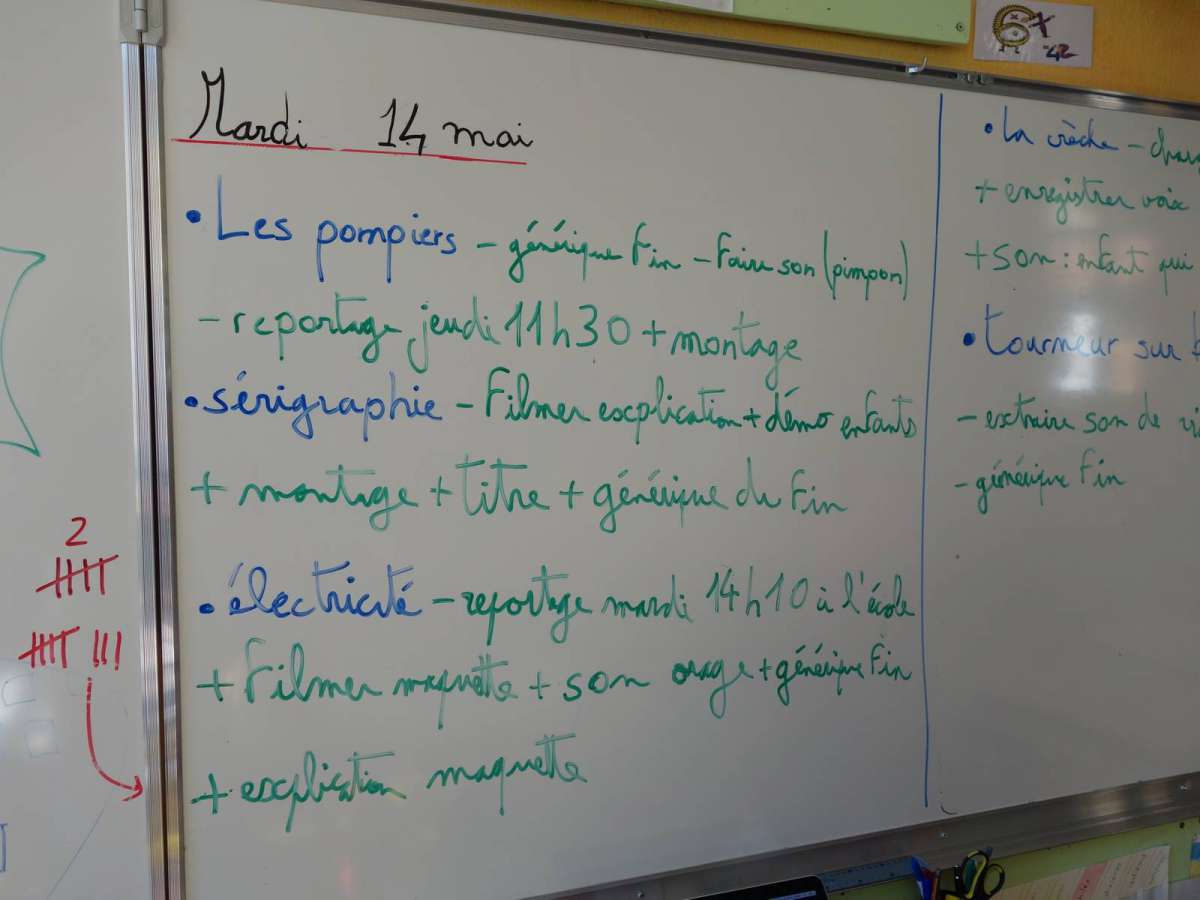 Mardi 14 mai
• Les pompiers - générique Fin - Faire son (pimpon)
- reportage jeudi 11h30 + montage
• sérigraphie - Filmer explication + démo enfants
+ montage + titre + générique de Fin
• électricité - reportage mardi 14h10 à l'école
+ Filmer maquette + son orage + générique Fin
+ explication maquette
• La crèche -
+ enregistrer voix
+ son : enfant qui
• tourneur sur
- extraire son de
- générique Fin
2